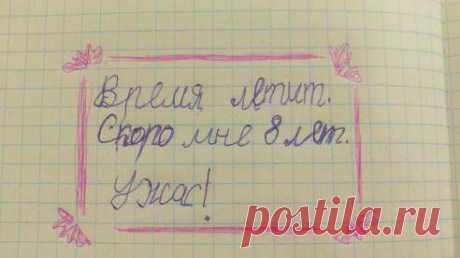 Время летит.
Скоро мне 8 лет.
Ужас!
postila.ru